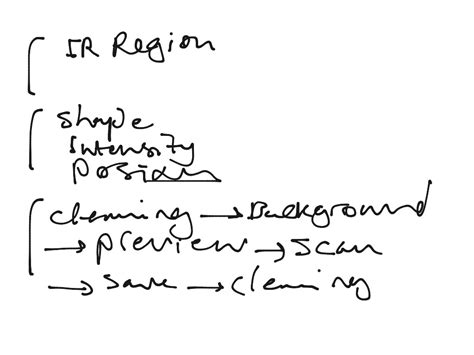 IR Region
Shape
Intensity
Position
Cleaning → Background
→ Preview → Scan
→ Save → Cleaning